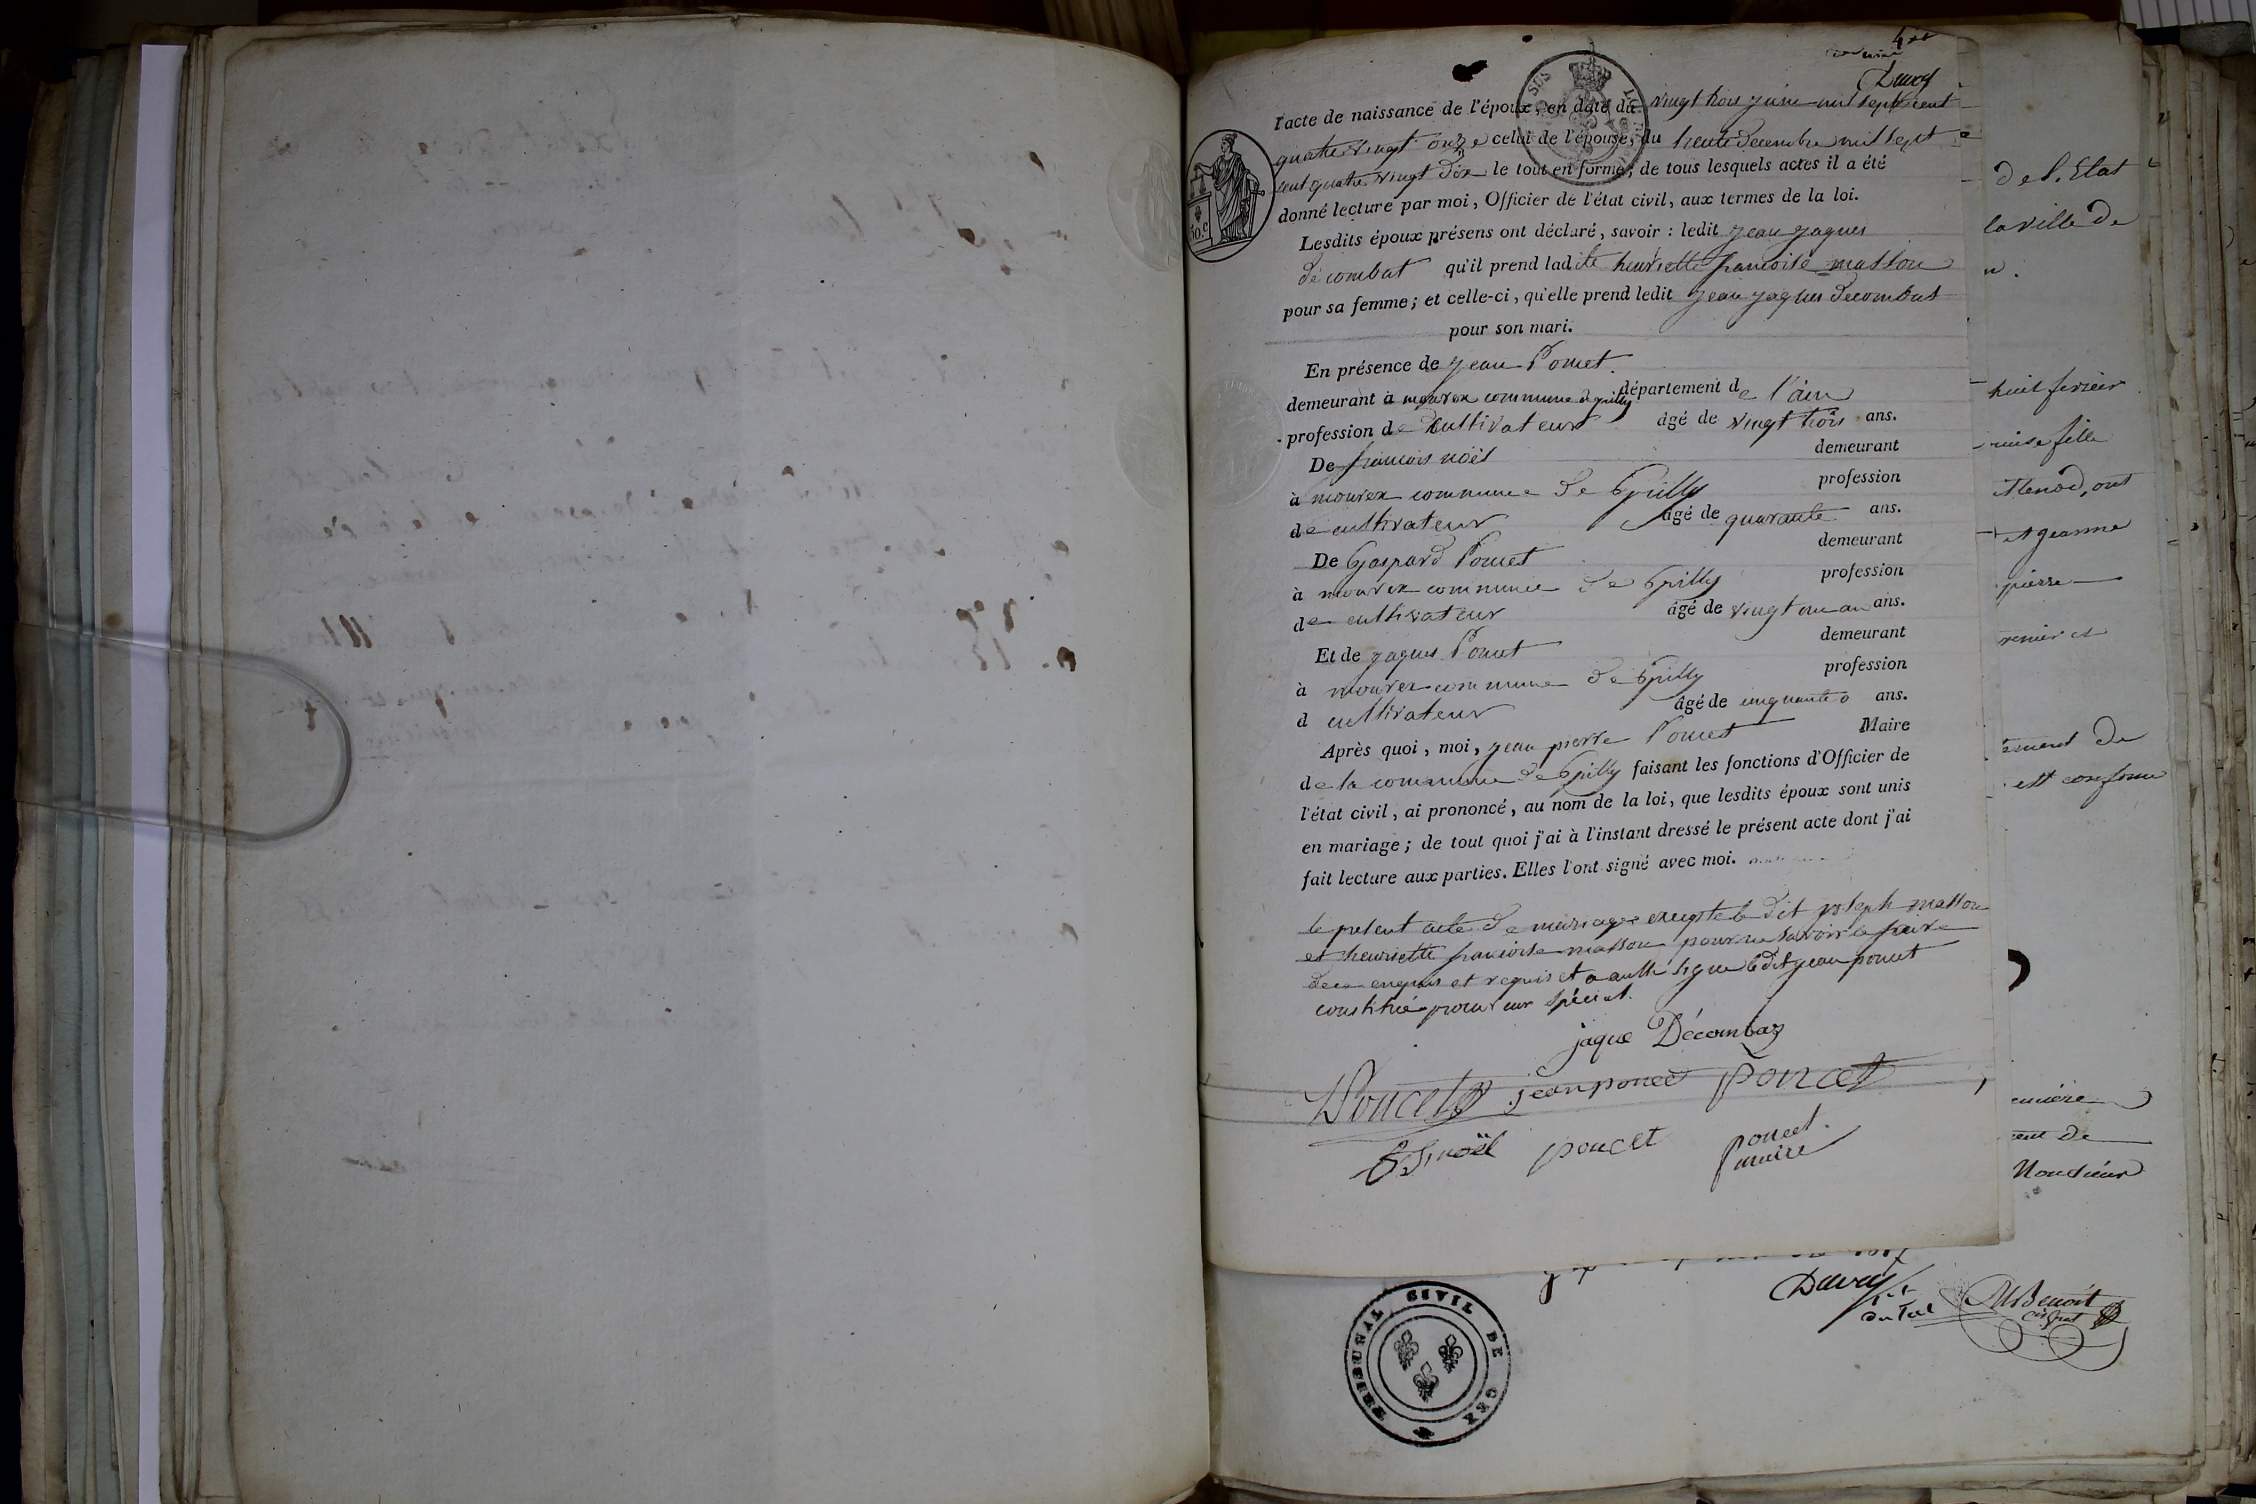 4
Davcy
l'acte de naissance de l'époux, en date du vingt trois juin mil sept cent
quatre vingt onze celui de l'épouse, du trente decembre mil sept
cent quatre vingt dix le tout en forme; de tous lesquels actes il a été
donné lecture par moi, Officier de l'état civil, aux termes de la loi.
Lesdits époux présens ont déclaré, savoir : ledit jean jaques
décombat qu'il prend ladite henriette francoise masson
pour sa femme; et celle-ci, qu'elle prend ledit jean jaques decombat
pour son mari.
En présence de jean Poncet
demeurant à mourex commune de grilly département de l'ain
profession de Cultivateur âgé de vingt trois ans.
De francois noël demeurant
à mourex commune de Grilly profession
de cultivateur âgé de quarante ans.
De Gaspard Poncet demeurant
à mourex commune de Grilly profession
de cultivateur âgé de vingt un an ans.
Et de jaques Poncet demeurant
à mourex commune de Grilly profession
d cultivateur âgé de cinquante ans.
Après quoi, moi, jean pierre Poncet Maire
de la commune de Grilly faisant les fonctions d'Officier de
l'état civil, ai prononcé, au nom de la loi, que lesdits époux sont unis
en mariage; de tout quoi j'ai à l'instant dressé le présent acte dont j'ai
fait lecture aux parties. Elles l'ont signé avec moi.
le present acte de mariage excepté le dit joseph masson
et henriette francoise masson pour ne savoir le faire
de ce enquis et requis et a aussi signé le dit jean poncet
constitué procureur spécial.
jaque Décombaz
Poncet jean poncet Poncet
noël poncet poncet
maire
30.c
de l'Etat
la ville de
huit fevrier
fille
Menod, ont
et jeanne
pierre
et
de
est conforme
de
Monsieur
1817
Davcy
du Tal
Benoit
TRIBUNAL CIVIL DE GEX